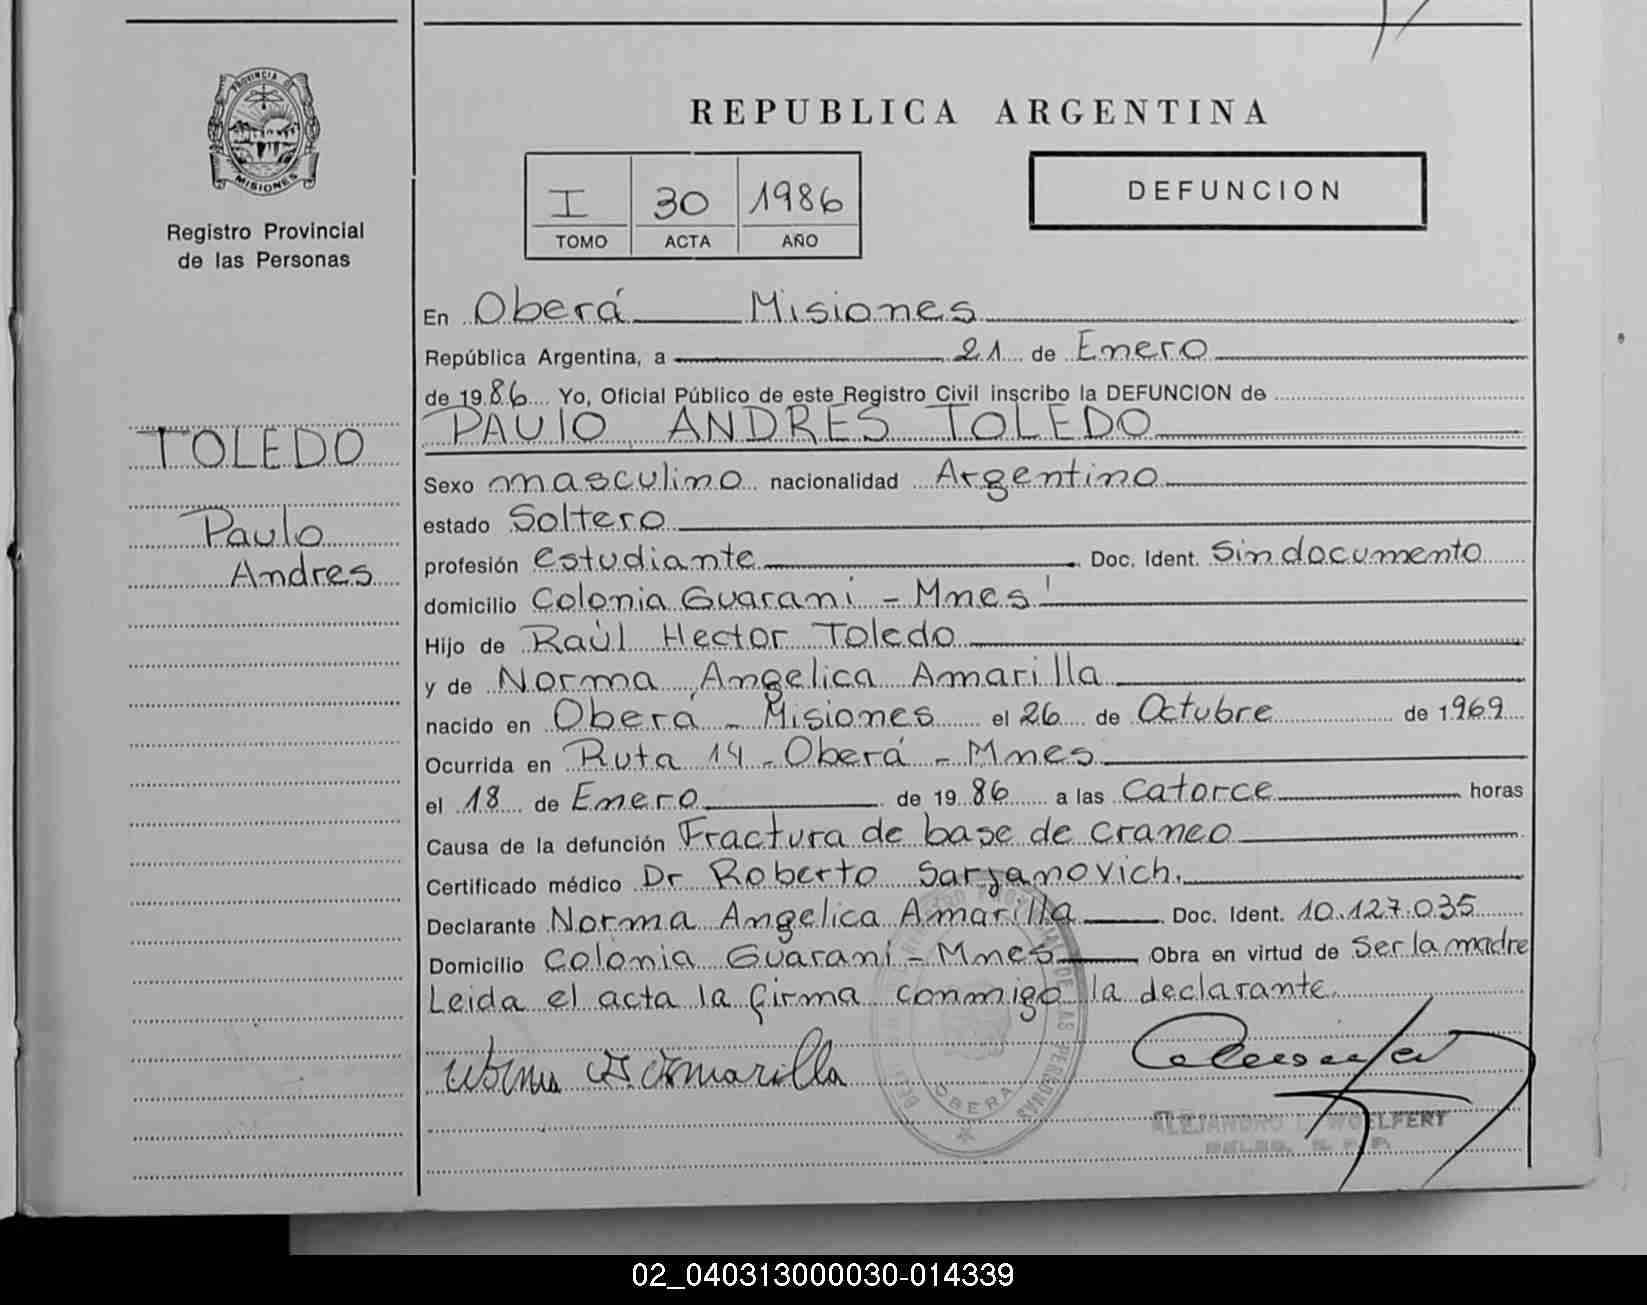 PROVINCIA DE
MISIONES
Registro Provincial
de las Personas
TOLEDO
Paulo
Andres
REPUBLICA ARGENTINA
I 30 1986
TOMO ACTA AÑO
DEFUNCION
En Oberá Misiones
República Argentina, a 21 de Enero
de 1986 Yo, Oficial Público de este Registro Civil inscribo la DEFUNCION de
PAUlO ANDRES TOLEDO
Sexo masculino nacionalidad Argentino
estado Soltero
profesión estudiante Doc. Ident. Sin documento
domicilio Colonia Guarani - Mnes
Hijo de Raúl Hector Toledo
y de Norma Angelica Amarilla
nacido en Oberá - Misiones el 26 de Octubre de 1969
Ocurrida en Ruta 14 - Oberá - Mnes
el 18 de Enero de 1986 a las Catorce horas
Causa de la defunción Fractura de base de craneo
Certificado médico Dr Roberto Sarjanovich.
Declarante Norma Angelica Amarilla Doc. Ident. 10.127.035
Domicilio Colonia Guaraní - Mnes Obra en virtud de Ser la madre
Leida el acta la firma conmigo la declarante.
Norma A Amarilla
OBERA
ALEJANDRO L. WOELFERT
02_040313000030-014339